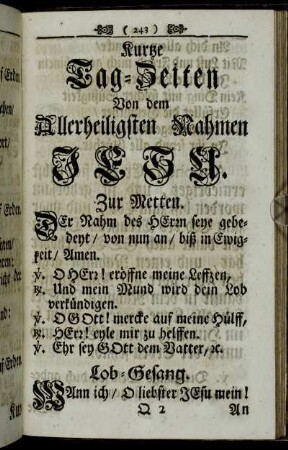 ( 243 )
Kurtze
Tag-Zeiten
Von dem
Allerheiligsten Nahmen
JESU.
Zur Metten.
DEr Nahm des HErrn seye gebe-
deyt / von nun an / biß in Ewig-
keit / Amen.
℣. O HErr! eröffne meine Leffzen,
℟. Und mein Mund wird dein Lob
verkündigen.
℣. O GOtt! mercke auf meine Hülff,
℟. HErr! eyle mir zu helffen.
℣. Ehr sey GOtt dem Vatter, ꝛc.
Lob-Gesang.
WAnn ich / O liebster JEsu mein!
Q 2 An